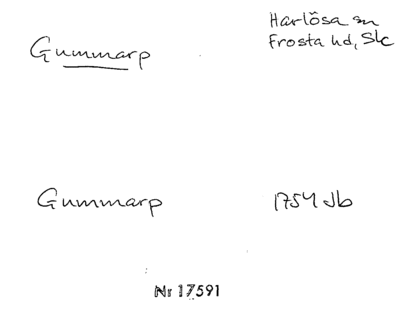 Gummarp
Harlösa sn
Frosta hd, Sk
Gummarp
1754 Jb
Nr 17591